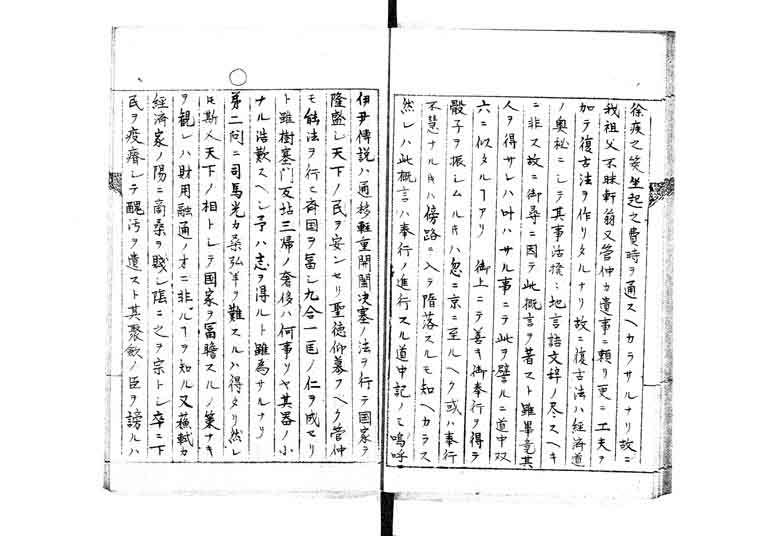 徐疾之筴坐起之費時ヲ通スヘカラサルナリ故ニ
我祖父不昧軒翁又管仲カ遺事ニ頼リ更ニ工夫ヲ
加テ復古法ヲ作リタルナリ故ニ復古法ハ経済道
ノ奥秘ニシテ其事活溌ニ地言語文粹ノ尽スヘキ
ニ非ス故ニ御尋ニ因テ此概言ヲ著スト雖畢竟其
人ヲ得サレハ叶ハサル事ニテ此ヲ譬ルニ道中双
六ニ似タルヿアリ 御上ニテ善キ御奉行ヲ得テ
骰子ヲ振シムルキハ忽ニ京ニ至ルヘク或ハ奉行
不慧ナルキハ傍路ニ入テ陏落スルモ知ヘカラス
然レハ此概言ハ奉行ノ進行スル道中記ノミ嗚呼
伊尹傅説ハ通移軽重開闔决塞ノ法ヲ行テ国家ヲ
隆盛シ天下ノ民ヲ安ンセリ聖徳仰慕フヘク管仲
モ能法ヲ行ヒ斉国ヲ冨シ九合一匡ノ仁ヲ成セリ
ト雖樹塞門反坫三帰ノ奢侈ハ何事リヤ其器ノ小
ナル浩歎スヘシ予ハ志ヲ得ルト雖為サルナリ
第二問ニ司馬光カ桑弘羊ヲ難スルハ得タリ然レ
𪜈斯人天下ノ相トシテ国家ヲ冨贍スルノ策ナキ
ヲ観レハ財用融通ノ才ニ非ルヿヲ知ル又蘓軾カ
経済家ノ陽ニ商桑ヲ賤シ陰ニ之ヲ宗トシ卒ニ下
民ヲ疫瘠シテ醜汚ヲ遺スト其聚斂ノ臣ヲ謗ルハ